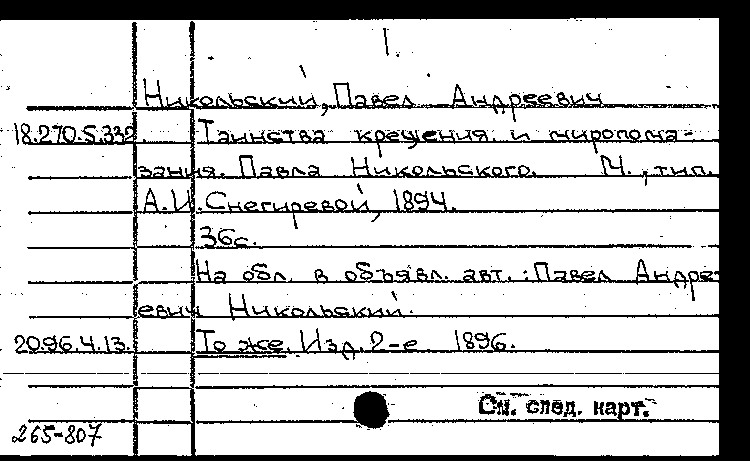 I.
Никольский, Павел Андреевич
18.270.5.332. Таинства крещения и миропома-
зания. Павла Никольского. М., тип.
А.И. Снегиревой, 1894.
36с.
На обл. в объявл. авт.: Павел Андре-
евич Никольский.
20.96.4.13. То же. Изд. 2-е 1896.
См. след. карт.
265-807